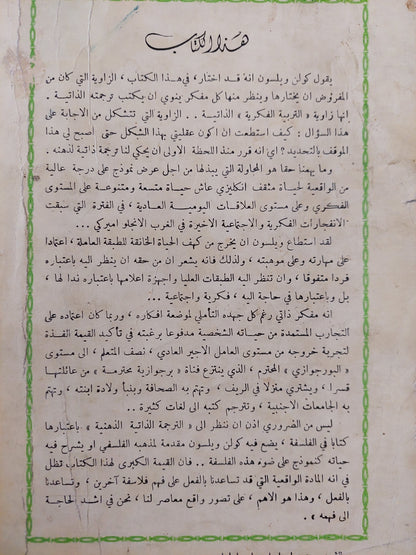 هذا الكتاب
يقول كولن ويلسون انه قد اختار ، في هذا الكتاب ، الزاوية التي كان من
المفروض ان يختارها وينظر منها كل مفكر ينوي ان يكتب ترجمته الذاتية .
انها زاوية « التربية الفكرية » الذاتية .. الزاوية التي تتشكل من الاجابة على
هذا السؤال : كيف استطعت ان اكون عقليتي بهذا الشكل حتى اصبح لي هذا
الموقف بالتحديد ? اي انه قرر منذ اللحظة الاولى ان يحكي لنا ترجمة ذاتية لذهنه .
وما يهمنا حقا هو المحاولة التي يبذلها من اجل عرض نموذج على درجة عالية
من الواقعية لحياة مثقف انكليزي عاش حياة متسعة ومتنوعة على المستوى
الفكري وعلى مستوى العلاقات اليومية العادية ، في الفترة التي سبقت
الانفجارات الفكرية والاجتماعية الاخيرة في الغرب الانجلو اميركي ...
لقد استطاع ويلسون ان يخرج من كهف الحياة الخانقة للطبقة العاملة ، اعتمادا
على مهارته وعلى موهبته ، ولذلك فانه يشعر ان من حقه ان ينظر اليه باعتباره
فردا متفوقا ، وان تنظر اليه الطبقات العليا واجهزة اعلامها باعتباره ندا لها ،
بل وباعتبارها في حاجة اليه ، فكرية واجتماعية ...
انه مفكر ذاتي رغم كل جهده التأملي لموضعة افكاره ، وربما كان اعتماده على
التجارب المستمدة من حياته الشخصية مدفوعا برغبته في تأكيد القيمة الفذة
لتجربة خروجه من مستوى العامل الاجير العادي ، نصف المتعلم ، الى مستوى
« البورجوازي » المحترم ، الذي ينتزع فتاة « برجوازية محترمة » من عائلتها
قسرا ، ويشتري منزلا في الريف ، وتهتم به الصحافة وبنبأ ولادة ابنته ، وتهتم
به الجامعات الاجنبية ، وتترجم كتبه الى لغات كثيرة ..
ليس من الضروري اذن ان ننظر الى « الترجمة الذاتية الذهنية » باعتبارها
كتابا في الفلسفة ، يضع فيه كولن ويلسون مقدمة لمذهبه الفلسفي او يشرح فيه
حياته كنموذج على ضوء هذه الفلسفة .. فان القيمة الكبرى لهذا الكتاب تظل
في انه المادة الواقعية التي قد تساعدنا بالفعل على فهم فلاسفة آخرين ، وتساعدنا
بالفعل ، وهذا هو الاهم ، على تصور واقع معاصر لنا ، نحن في اشد الحاجة
الى فهمه » .